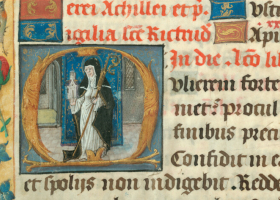 erei Achillei et p̄.
igilia sc̄e Rictrud
In die. Aco lu
ulierem forte
met: procul
finibus preci
Confidit in ea
et spolijs non indigebit. Redde
ulti
Api